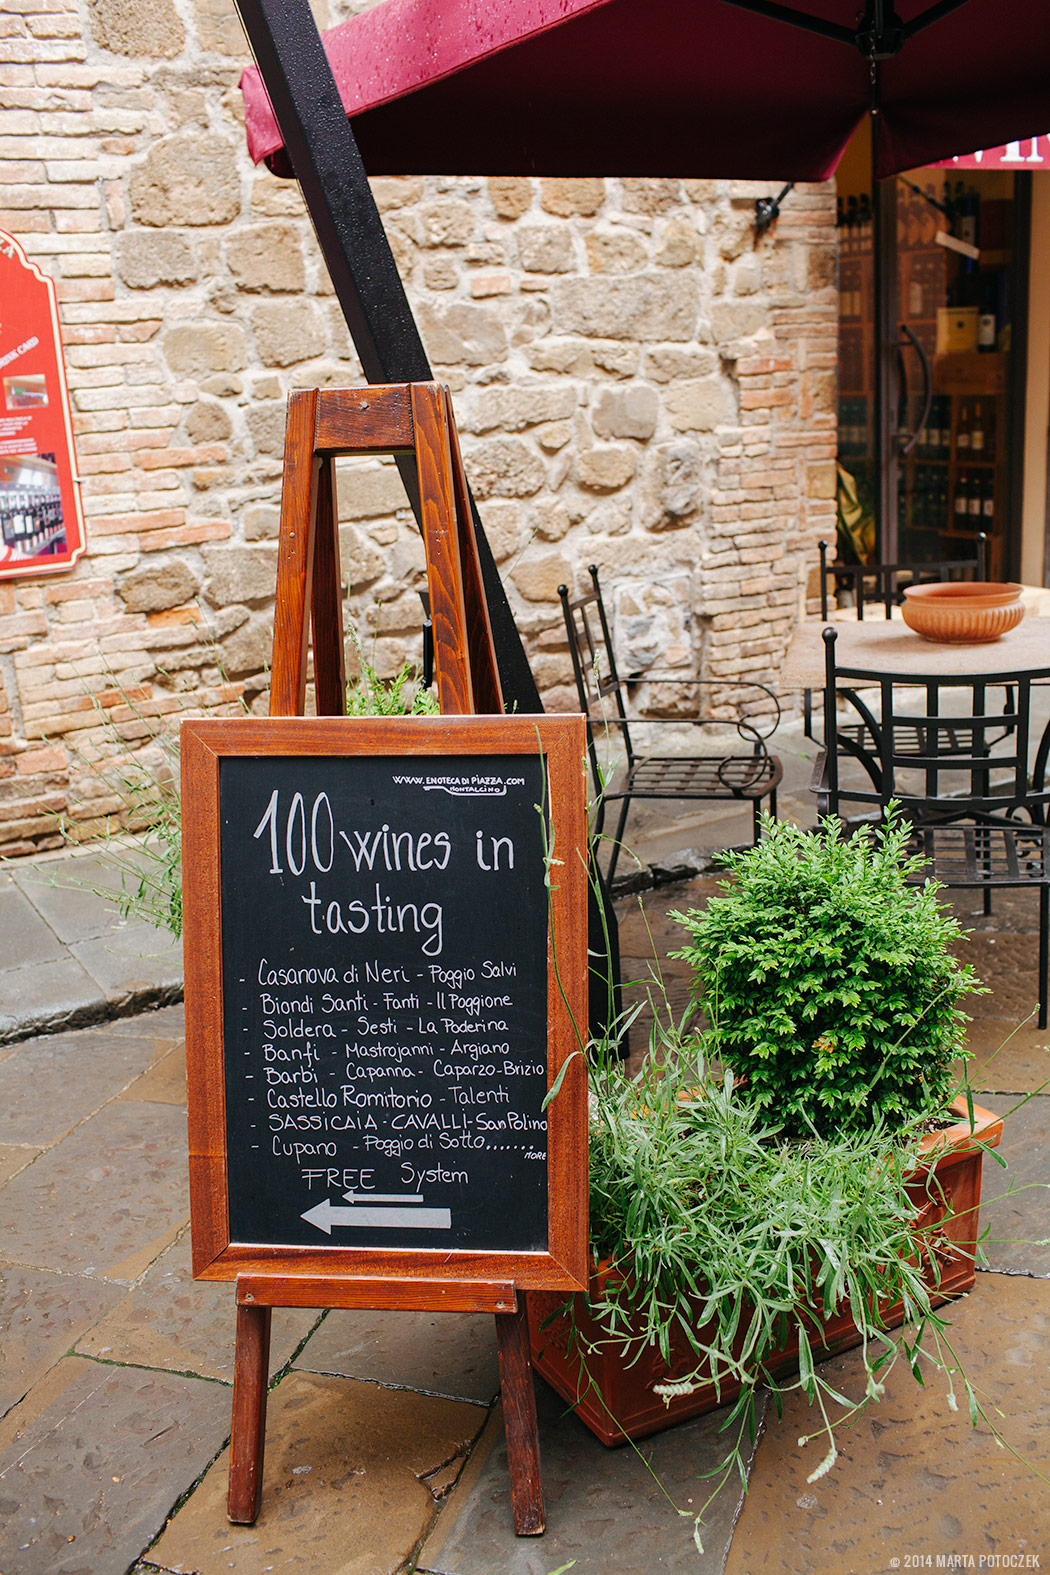 WWW.ENOTECADIPIAZZA.COM
MONTALCINO
100 wines in
tasting
- Casanova di Neri - Poggio Salvi
- Biondi Santi - Fanti - Il Poggione
- Soldera - Sesti - La Poderina
- Banfi - Mastrojanni - Argiano
- Barbi - Capanna - Caparzo - Brizio
- Castello Romitorio - Talenti
- SASSICAIA - CAVALLI - San Polino
- Cupano - Poggio di Sotto.......
MORE
FREE System
DRINK CARD
© 2014 MARTA POTOCZEK